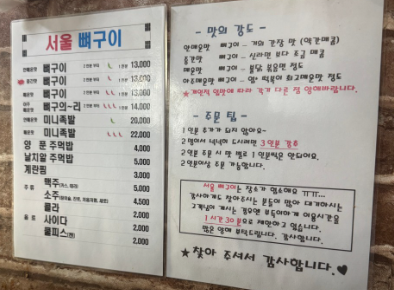 서울 뼈구이
안매운맛 뼈구이 1인분 13,000
중간맛 뼈구이 1인분 13,000
매운맛 뼈구이 1인분 13,000
뼈구의~리 14,000
안매운맛 미니족발 20,000
매운맛 미니족발 22,000
양 푼 주먹밥 4,000
날치알 주먹밥 5,000
계란찜 3,000
주류 맥주 5,000
소주 4,500
콜라 2,000
사이다 2,000
쿨피스 2,000
- 맛의 강도 -
안매운맛 뼈구이 - 거의 간장 맛 (약간매콤)
중간맛 뼈구이 - 신라면 보다 조금 매콤
매운맛 뼈구이 - 불닭 볶음면 정도
아주매운맛 뼈구이 - 엽기 떡볶이 최고매운맛 정도
★개인적 입맛에 따라 각각 다른 점 양해바랍니다.
- 주문 팁 -
1인분 추가가 되지 않아요~
2명이서 넉넉히 드시려면 3인분 강추
2인분 주문 시 맛 별로 1인분씩은 안되어요.
2인분이상 주문 가능합니다.
서울 뼈구이는 장소가 협소해요 ㅠㅠ...
감사하게도 찾아주시는 분들이 많아 대기하시는
고객님이 계시는 경우엔 부득이하게 이용시간을
1시간 30분으로 제한하고 있습니다.
많은 양해 부탁드립니다. 감사합니다.
★찾아 주셔서 감사합니다.♥